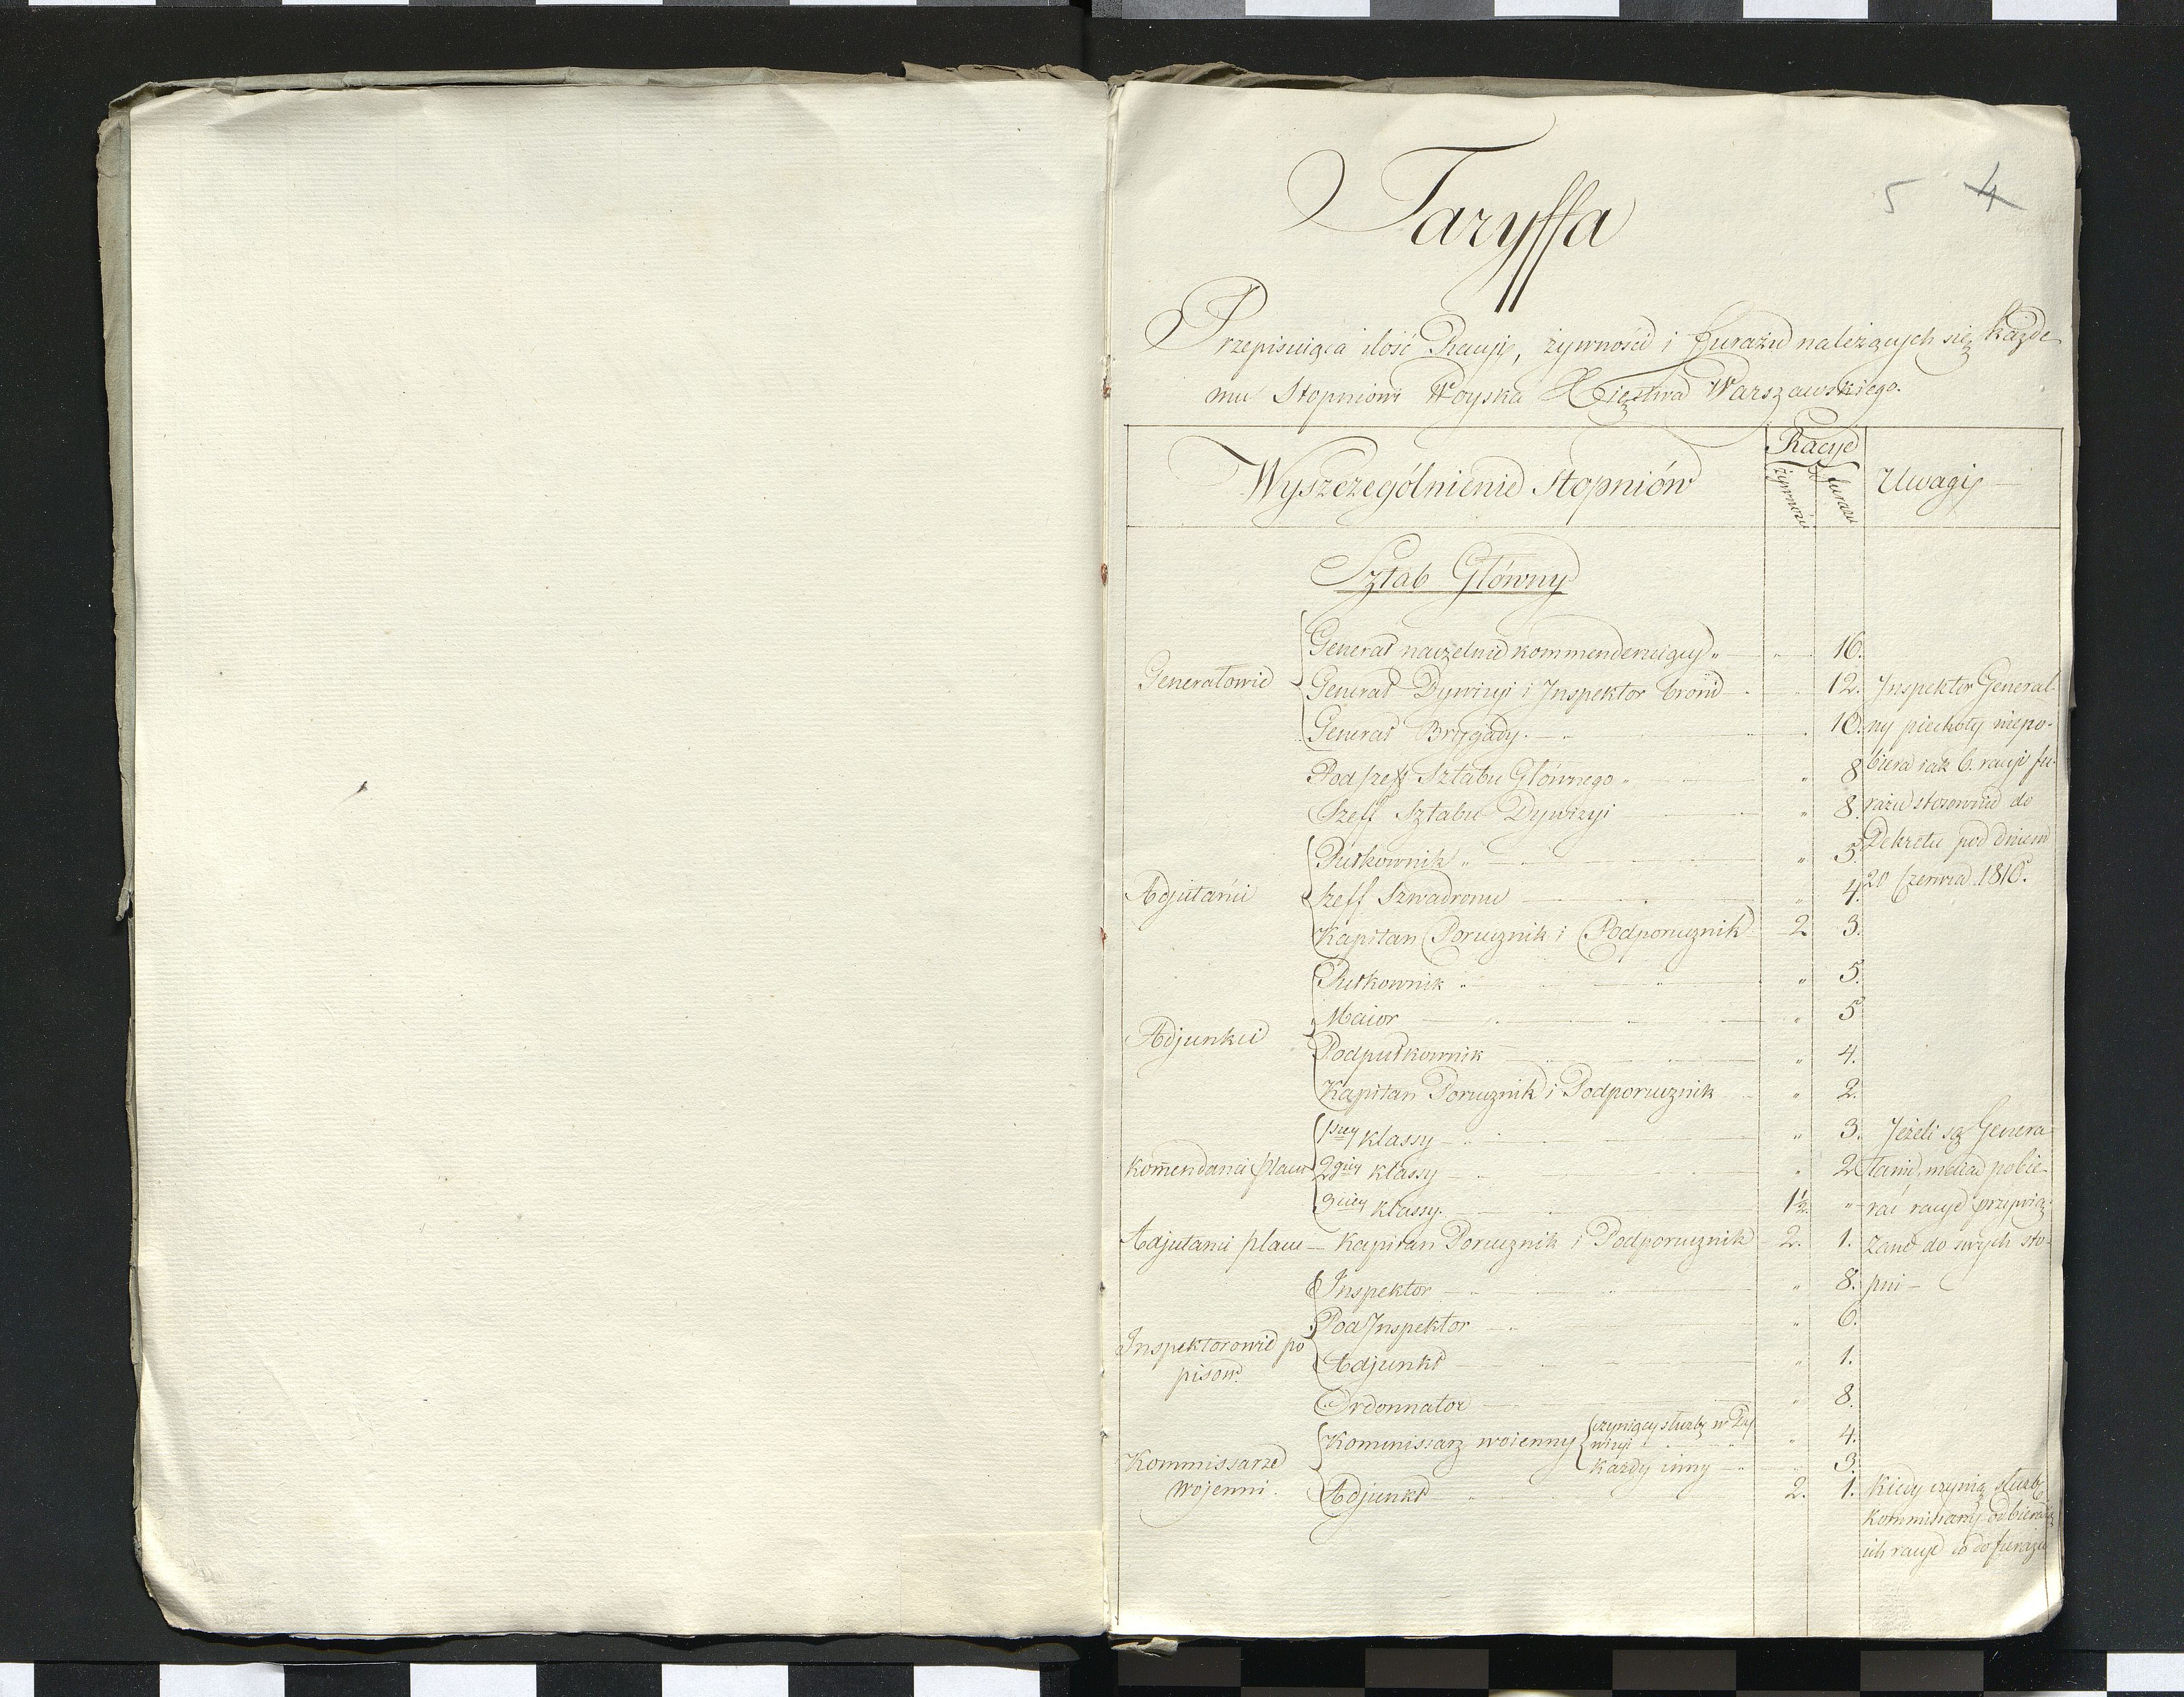 5 4
Taryffa
Przepisuiąca ilość Racyi, żywności i furażu należących się każde
mu Stopniowi Woyska Xięstwa Warszawskiego.
Wyszczególnienie Stopniów Racye Uwagi
żywności furażu
Sztab Główny
Generałowie
Generał naczelnie kommenderuiący „ 16.
Generał Dywizyi i Inspektor broni „ 12. Inspektor General-
Generał Brygady. 10. ny piechoty niepo-
Podszeff Sztabu Głównego „ 8 biera iak 6. racyi fu-
Szeff Sztabu Dywizyi „ 8. rażu stosownie do
Adjutanci
Pułkownik „ 5. Dekretu pod dniem
Szeff Szwadronu „ 4. 20 Czerwca 1810.
Kapitan Porucznik i Podporucznik 2 3.
Adjunkci
Pułkownik „ 5.
Maior „ 5
Podpułkownik „ 4.
Kapitan Porucznik i Podporucznik „ 2.
Komendanci placu
1szey klassy „ 3. Jeżeli są Genera-
2giey klassy „ 2 łami, maią pobie-
3ciey klassy. 1½. „ rać racye przywią-
Adjutanci placu — Kapitan Porucznik i Podporucznik 2. 1. zane do swych sto-
Inspektorowie po
pisow.
Inspektor „ 8. pni —
PodInspektor „ 6.
Adjunkt „ 1.
Kommissarze
Wojenni.
Ordonnator „ 8.
Kommissarz woienny czyniący służbę w Dy
wizyi „ 4.
każdy inny „ 3.
Adjunkt 2. 1. Kiedy czynią służbę
Kommissarzy odbieraią
ich racye co do furażu